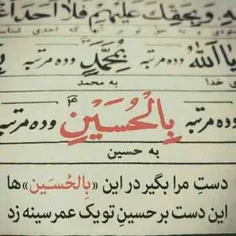 وَبِحَقِّكَ عَلَيْهِمْ فَلا اَحَدَ
يا اَللهُ وده مرتبه بِمُحَمَّدٍ وده مرتبه
خدا به محمد
وده مرتبه بِالْحُسَيْنِ وده مرتبه
به حسین
دستِ مرا بگیر در این «بِالحُسَین» ها
این دست بر حسینِ تو یک عمر سینه زد